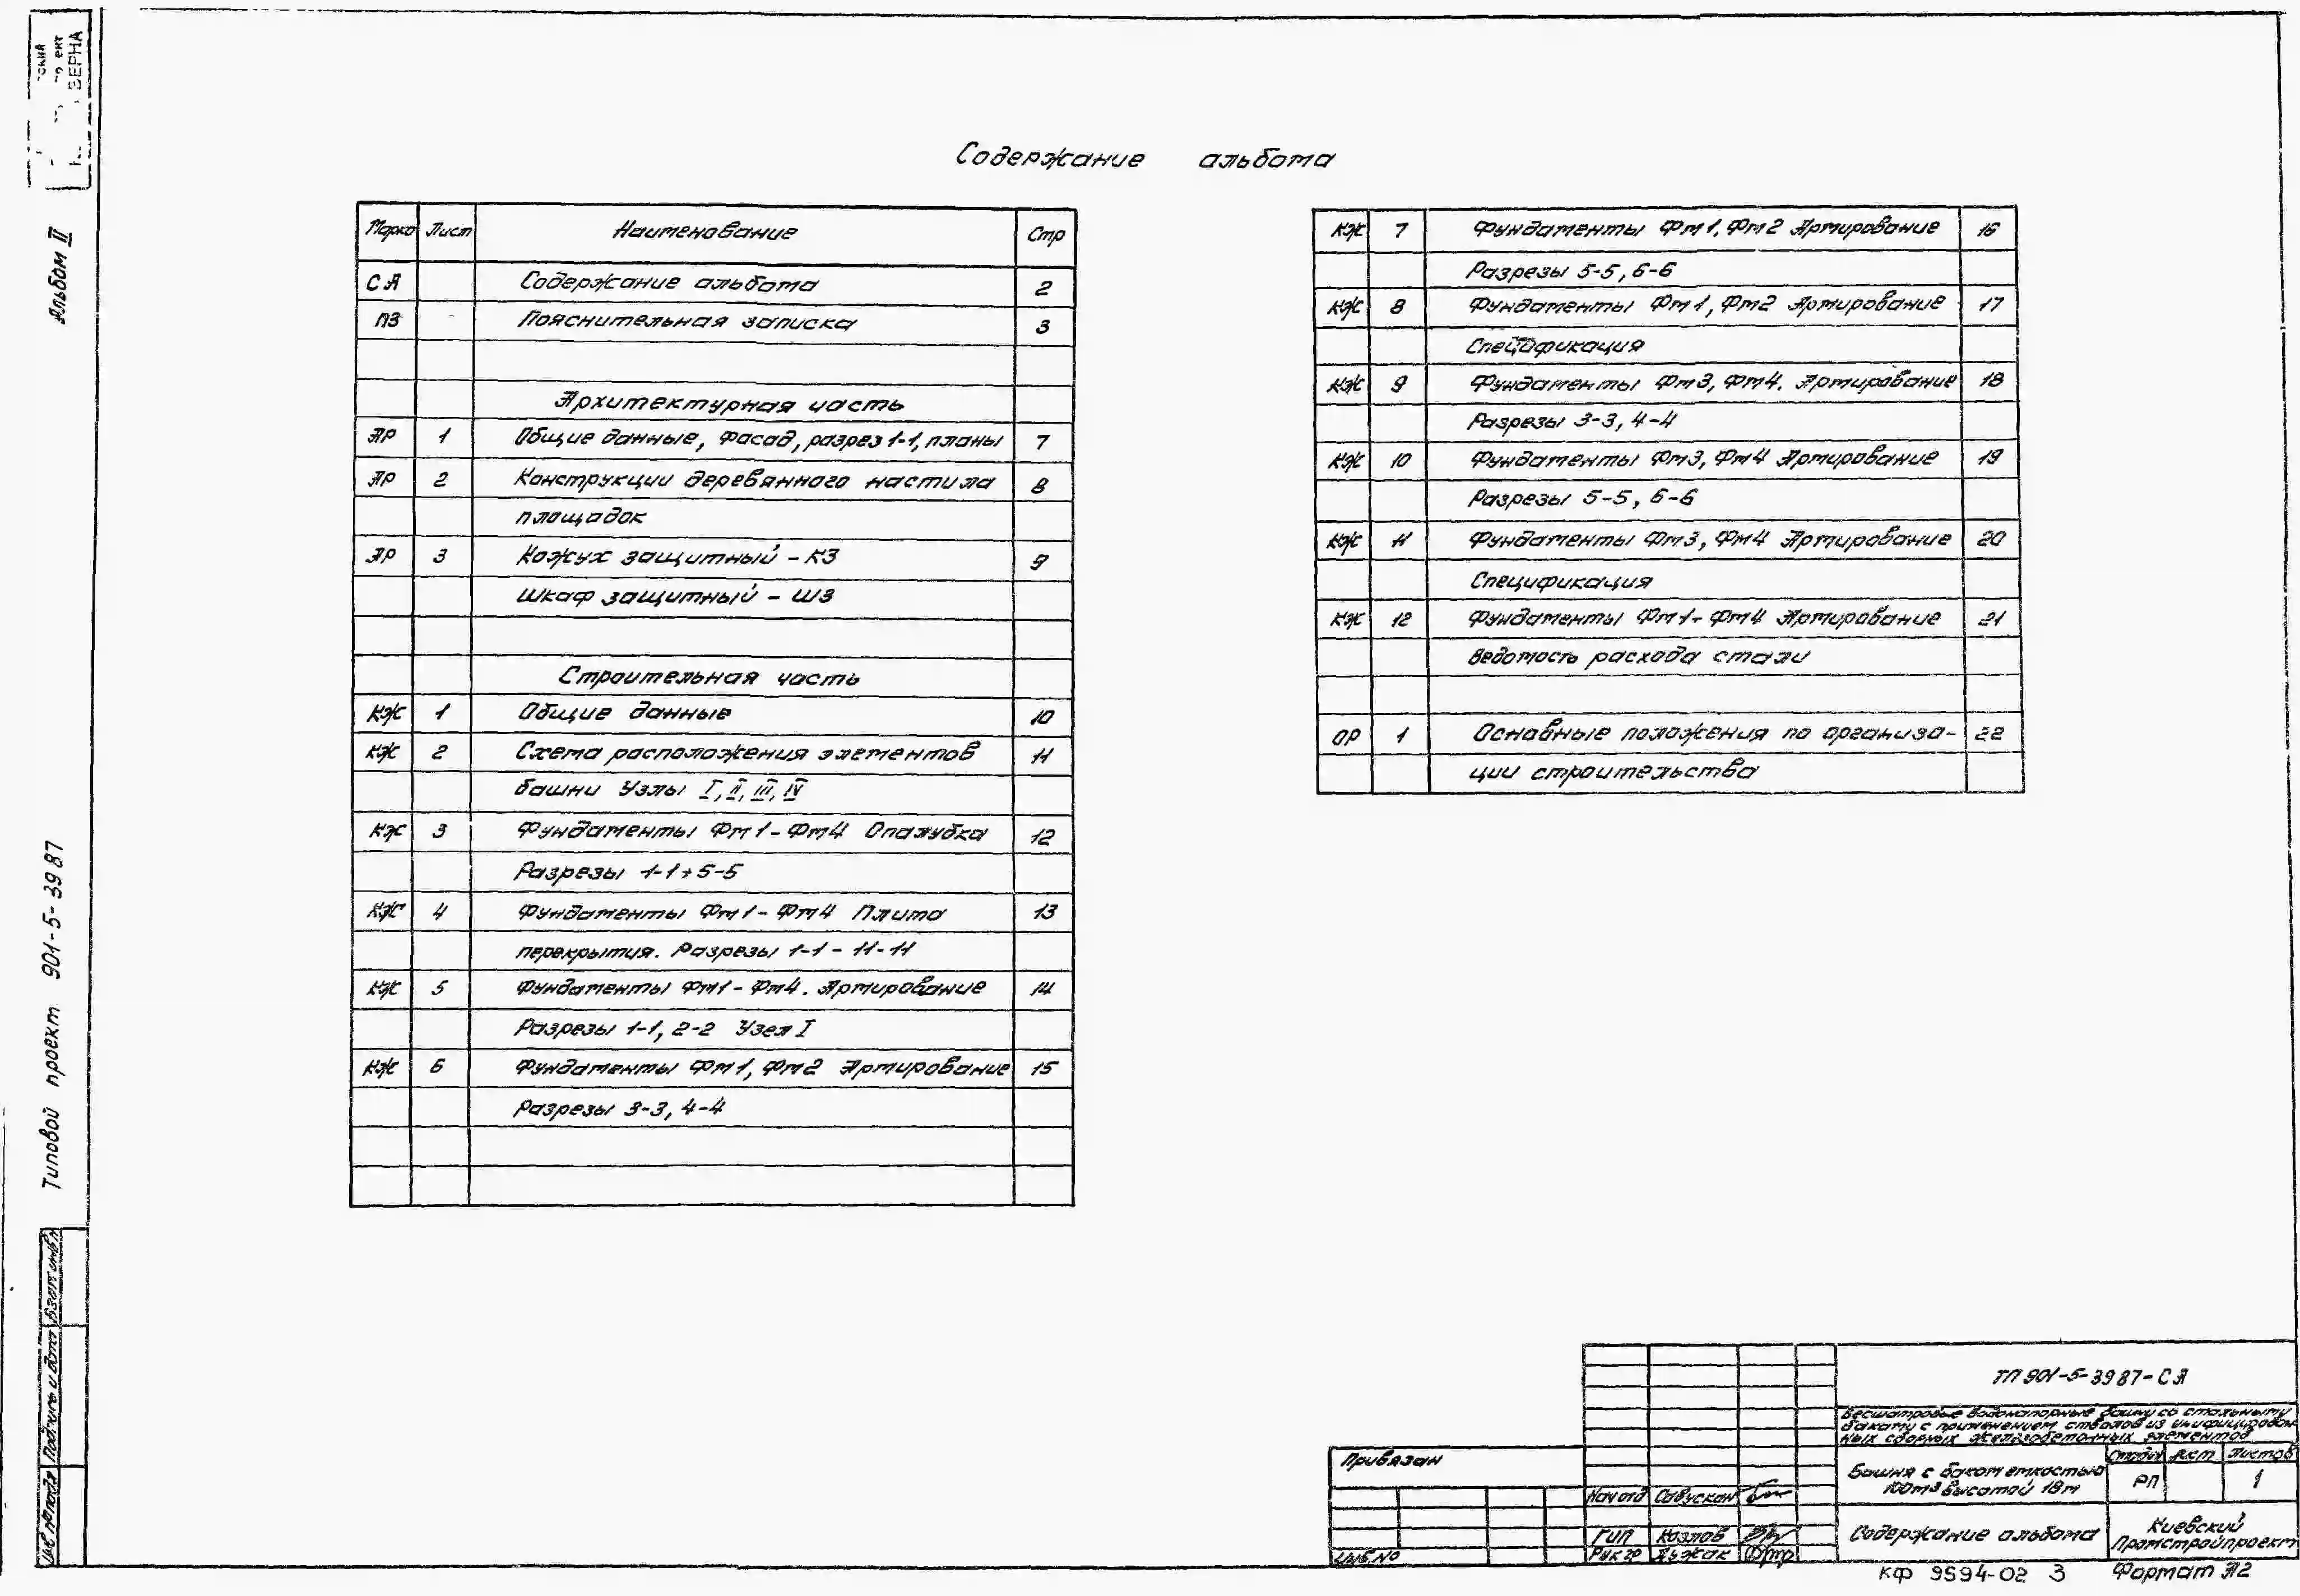 Содержание альбома
Марка Лист Наименование Стр
СА Содержание альбома 2
ПЗ Пояснительная записка 3
Архитектурная часть
АР 1 Общие данные, Фасад, разрез 1-1, планы 7
АР 2 Конструкции деревянного настила 8
площадок
АР 3 Кожух защитный - КЗ 9
Шкаф защитный - ШЗ
Строительная часть
КЖ 1 Общие данные 10
КЖ 2 Схема расположения элементов 11
башни Узлы I, II, III, IV
КЖ 3 Фундаменты Фм1-Фм4 Опалубка 12
Разрезы 1-1÷5-5
КЖ 4 Фундаменты Фм1-Фм4 Плита 13
перекрытия. Разрезы 1-1 - 11-11
КЖ 5 Фундаменты Фм1-Фм4. Армирование 14
Разрезы 1-1, 2-2 Узел I
КЖ 6 Фундаменты Фм1, Фм2 Армирование 15
Разрезы 3-3, 4-4
КЖ 7 Фундаменты Фм1, Фм2 Армирование 16
Разрезы 5-5, 6-6
КЖ 8 Фундаменты Фм1, Фм2 Армирование 17
Спецификация
КЖ 9 Фундаменты Фм3, Фм4. Армирование 18
Разрезы 3-3, 4-4
КЖ 10 Фундаменты Фм3, Фм4 Армирование 19
Разрезы 5-5, 6-6
КЖ 11 Фундаменты Фм3, Фм4 Армирование 20
Спецификация
КЖ 12 Фундаменты Фм1-Фм4 Армирование 21
Ведомость расхода стали
ОР 1 Основные положения по организа- 22
ции строительства
Альбом II
Типовой проект 901-5-39 87
Взам инв.№
Подпись и дата
Инв № подл
ТП 901-5-39 87-СА
Бесшатровые водонапорные башни со стальными
баками с применением стволов из унифицирован
ных сборных железобетонных элементов
Привязан
Инв.№
Нач отд Савускан
ГИП Козлов
Рук гр Лужак
Башня с баком емкостью
100м3 высотой 18м
Стадия Лист Листов
РП 1
Содержание альбома
Киевский
Промстройпроект
КФ 9594-02 3 Формат А2